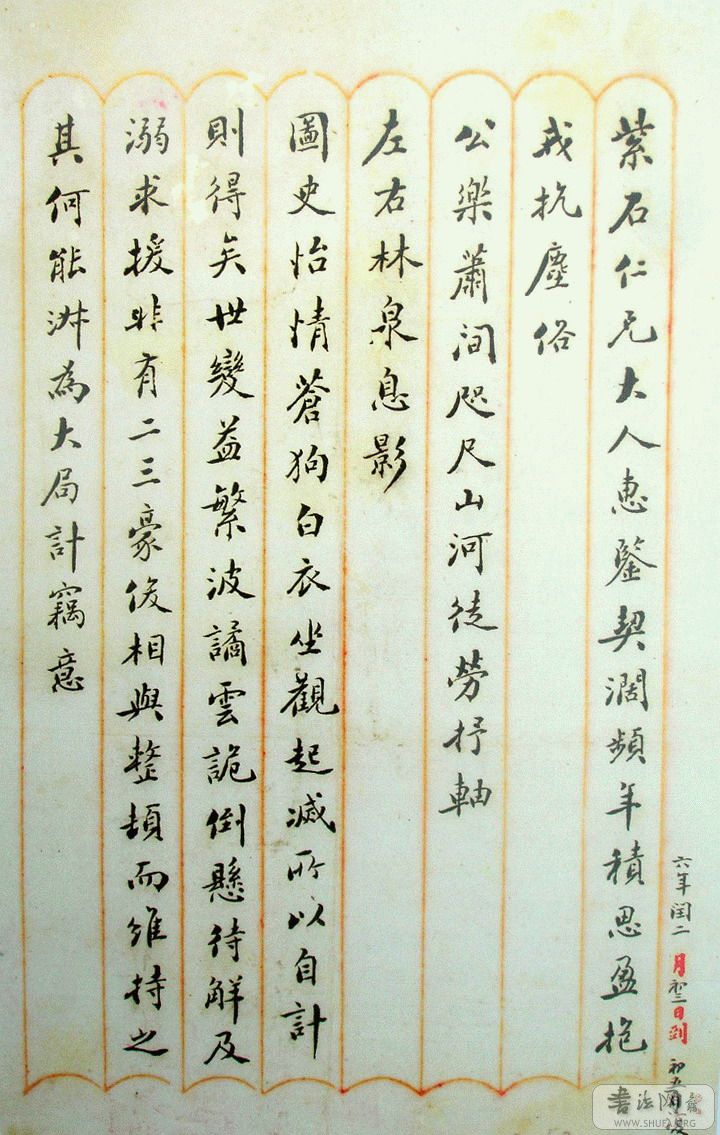 紫石仁兄大人惠鑒契濶頻年積思盈抱
我抗塵俗
公樂蕭閒咫尺山河徒勞抒軸
左右林泉息影
圖史怡情蒼狗白衣坐觀起滅所以自計
則得矣世變益繁波譎雲詭倒懸待解及
溺求援非有二三豪俊相與整頓而維持之
其何能淑為大局計竊意
六年閏二月初二日到
初五日復
書法网
WWW.SHUFA.ORG